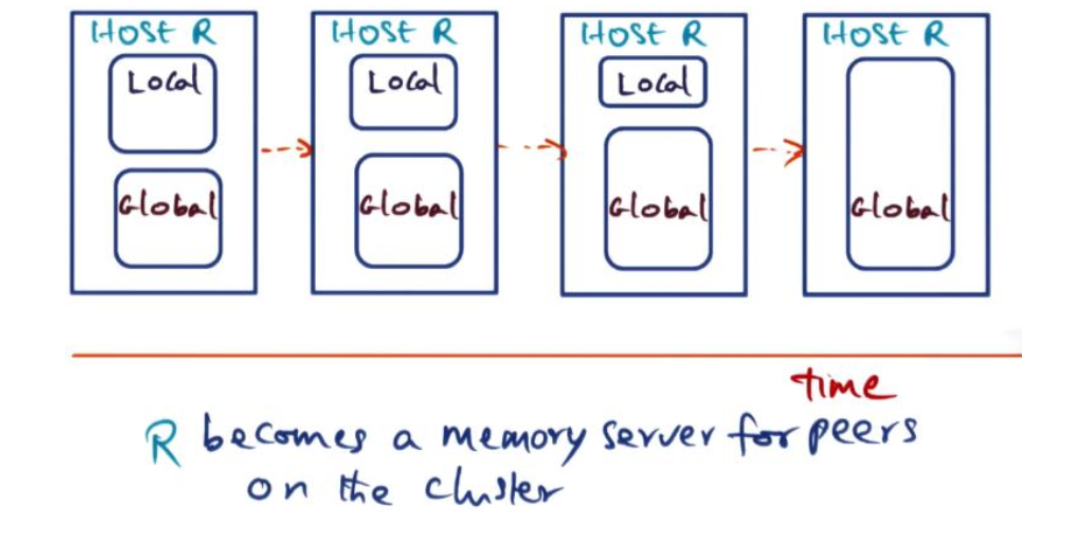 Host R
Local
Global
Host R
Local
Global
Host R
Local
Global
Host R
Global
time
R becomes a memory server for peers
on the cluster